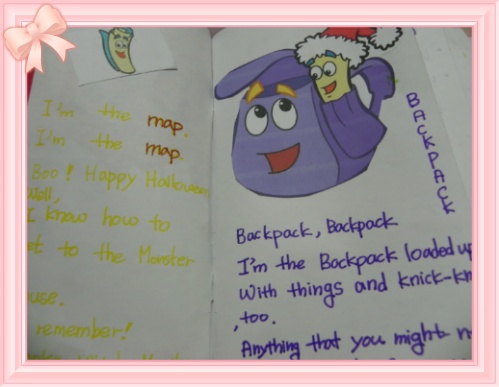 I'm the map.
I'm the map.
Boo! Happy Hallowe
Well,
I know how to
to the Monster
use.
remember!
BACKPACK
Backpack, Backpack
I'm the Backpack loaded up
With things and knick-kn
,too.
Anything that you might n